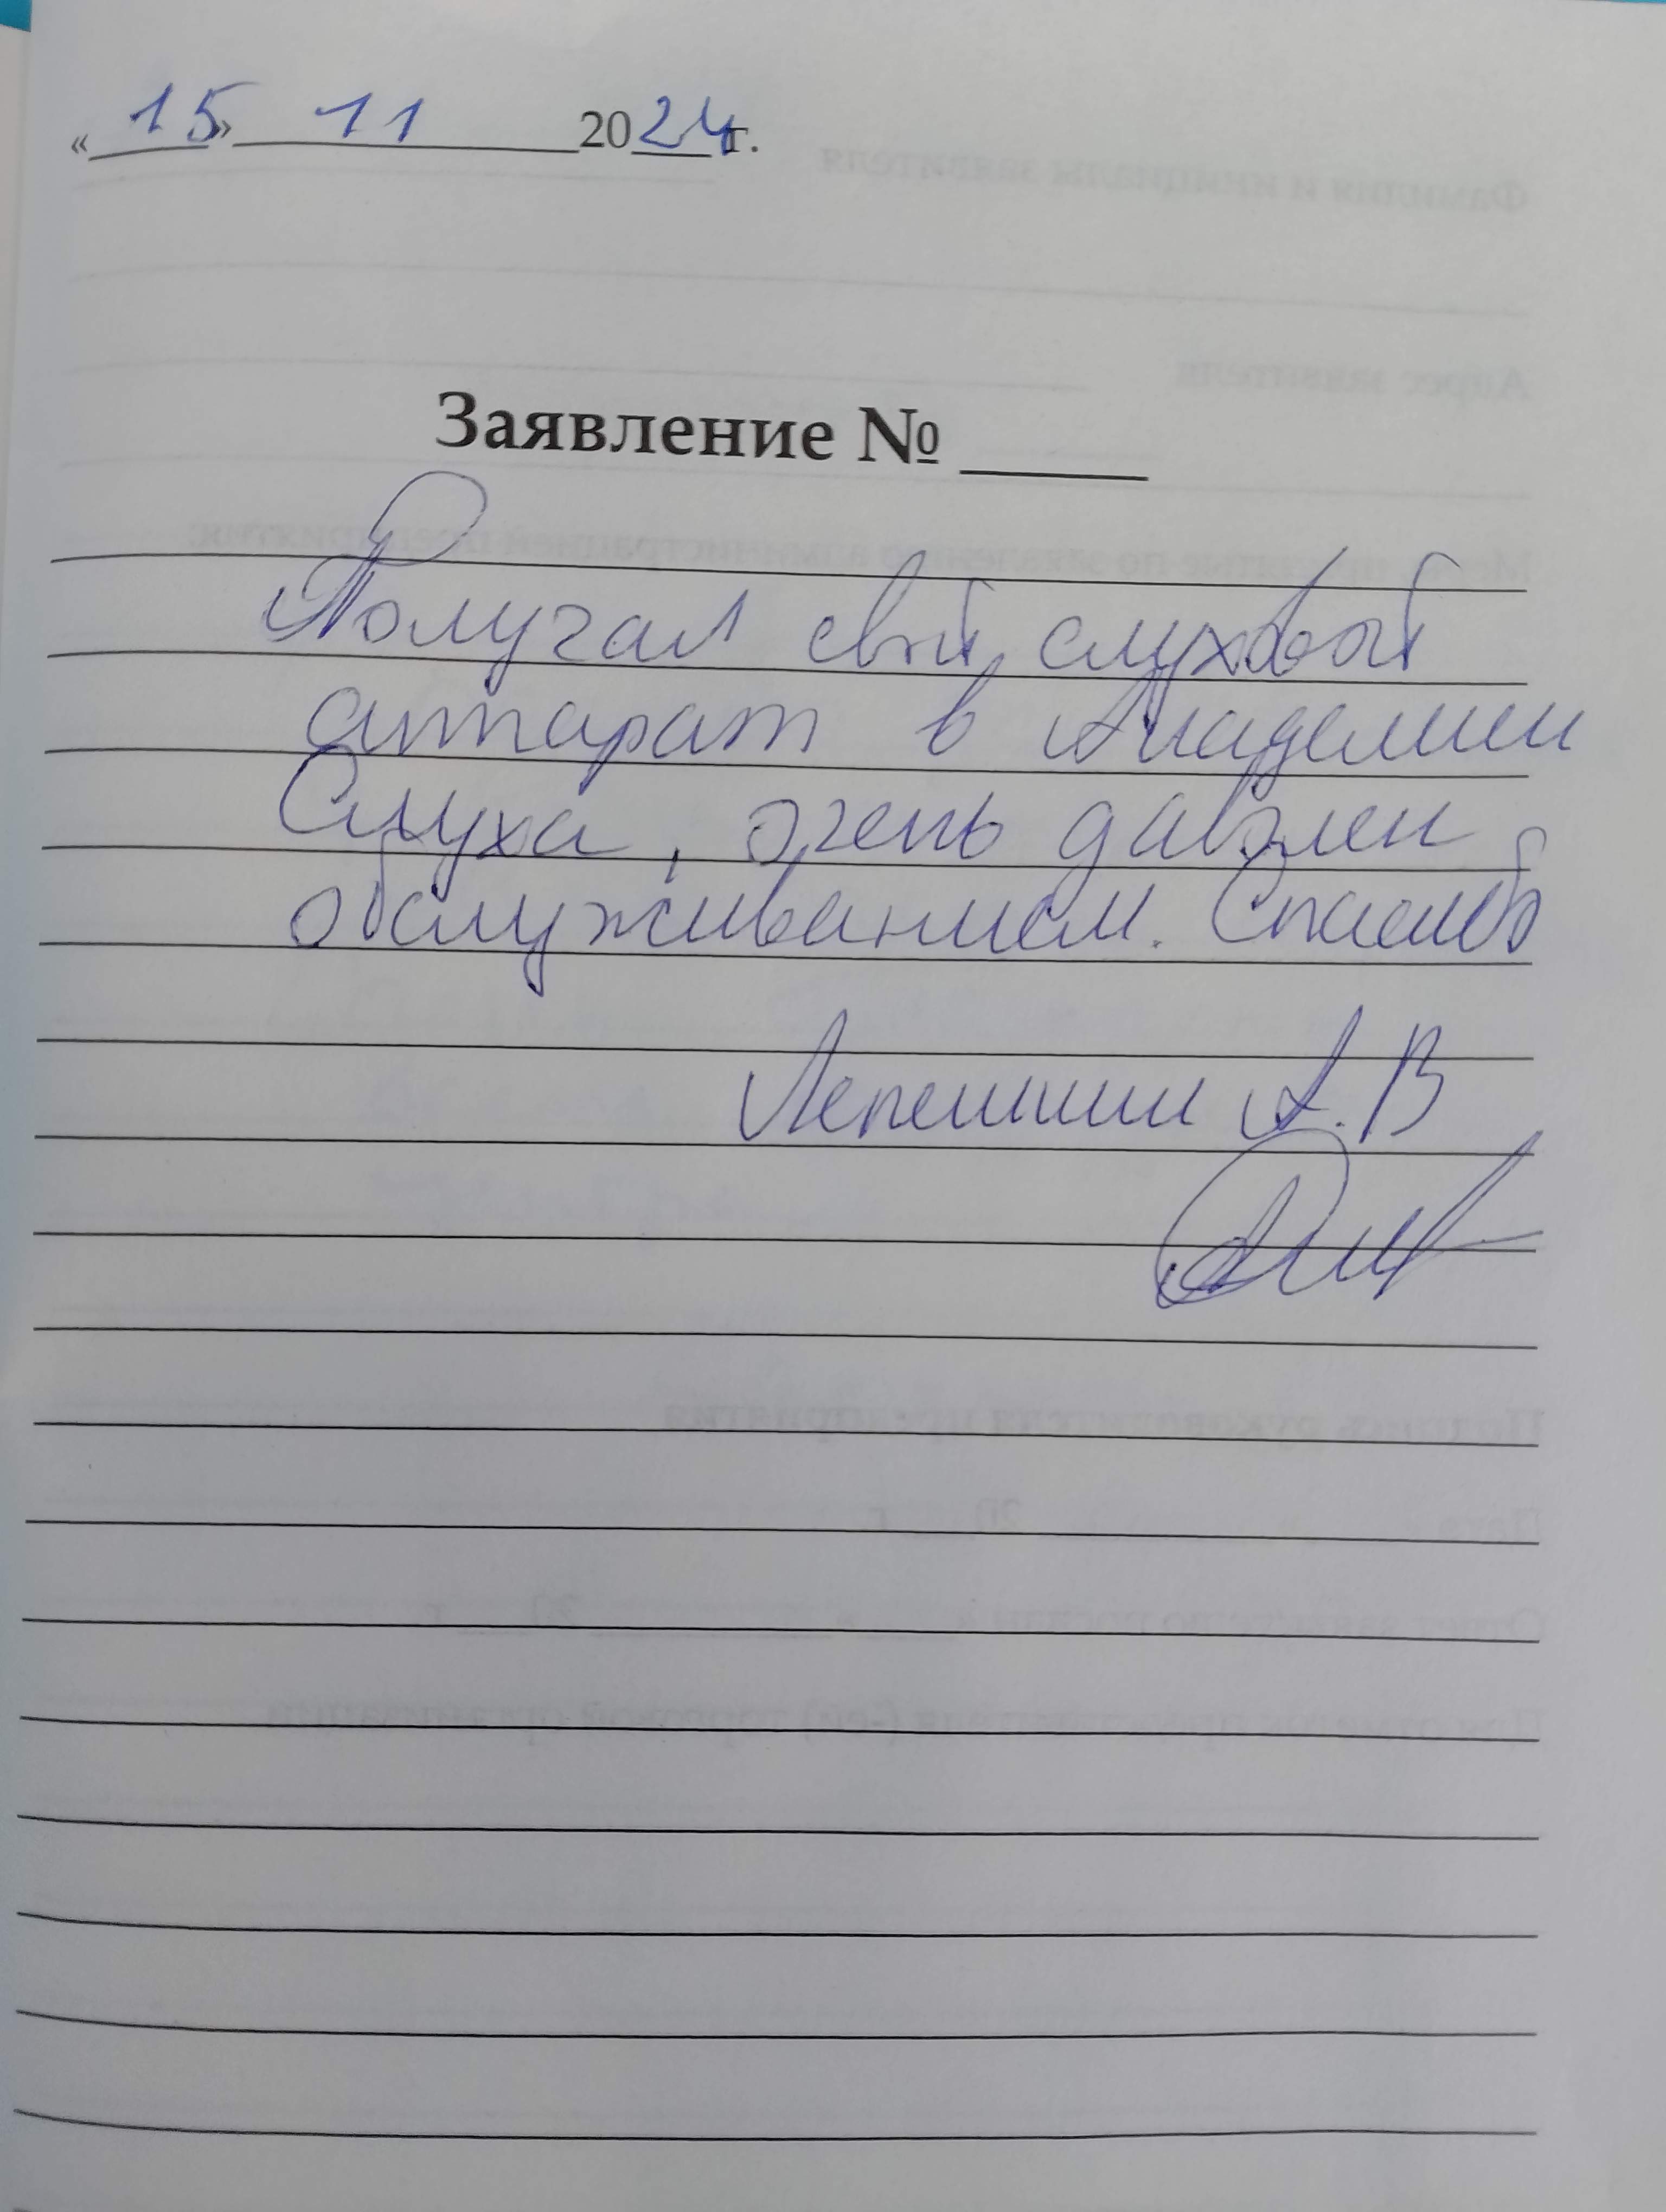 « 15 » 11 2024 г.
Заявление № ____
Получал свой слуховой
аппарат в Академии
Слуха, очень даволен
обслуживанием. Спасибо
Лепешкин А.В